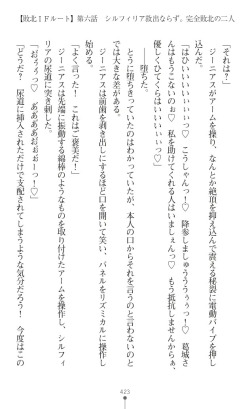 【敗北ＩＦルート】第六話　シルフィリア救出ならず。完全敗北の二人
「それは？」
　ジーニアスがアームを操り、なんとか絶頂を抑え込んで震える秘裂に電動バイブを押し
込んだ。
「はひいいいぃぃっ♡　こうしゃんっ！♡　降参しましゅうううぅぅっ♡　葛城さ
ぁああああぁぁのぉ♡　私を助けてくれる人はいましぇんっ♡　もう抵抗しませんからぁ、
優しくひてくらはいいいぃぃっ♡」
　――堕ちた。
　とうに堕ちきっていたのはわかっていたが、本人の口から伝えるのと言わないのと
では大きな差がある。
　ジーニアスは前歯を剥き出しにするほど口を開いて笑い、パネルをリズミカルに操作し
始める。
「よく言った！　これはご褒美だ！」
　ジーニアスは先端に振動する綿棒のようなものを取り付けたアームを操作し、シルフィ
リアの尿道に突き刺した。
「おぉぅっ♡　あぁあぁおぉぉーっ！♡」
「どうだ？　尿道に挿入されただけで支配されてしまうような気分だろう？　今度はこの
423